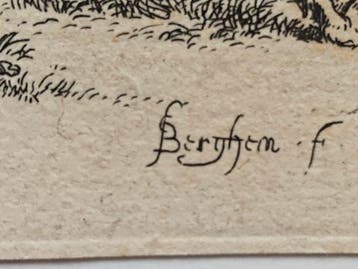 Berghem · f